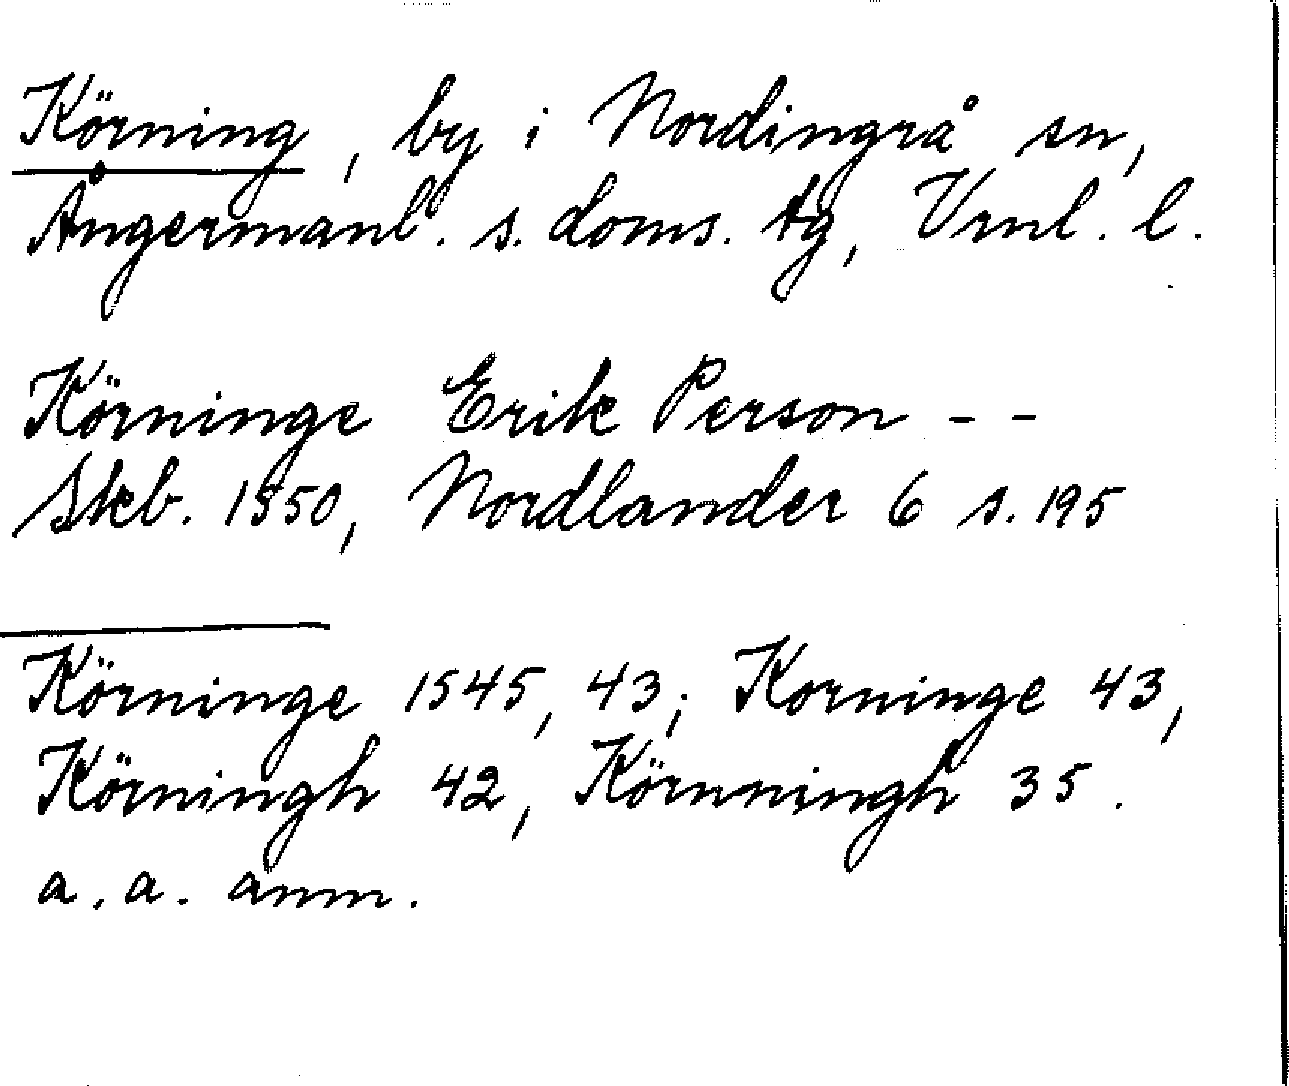 Körning, by i Nordingrå sn,
Ångermanl. s. doms. tg, Vrnl. l.
Körninge Erik Person - -
Skb. 1550, Nordlander 6 s. 195
Körninge 1545, 43; Korninge 43,
Körningh 42, Körnningh 35.
a. a. anm.